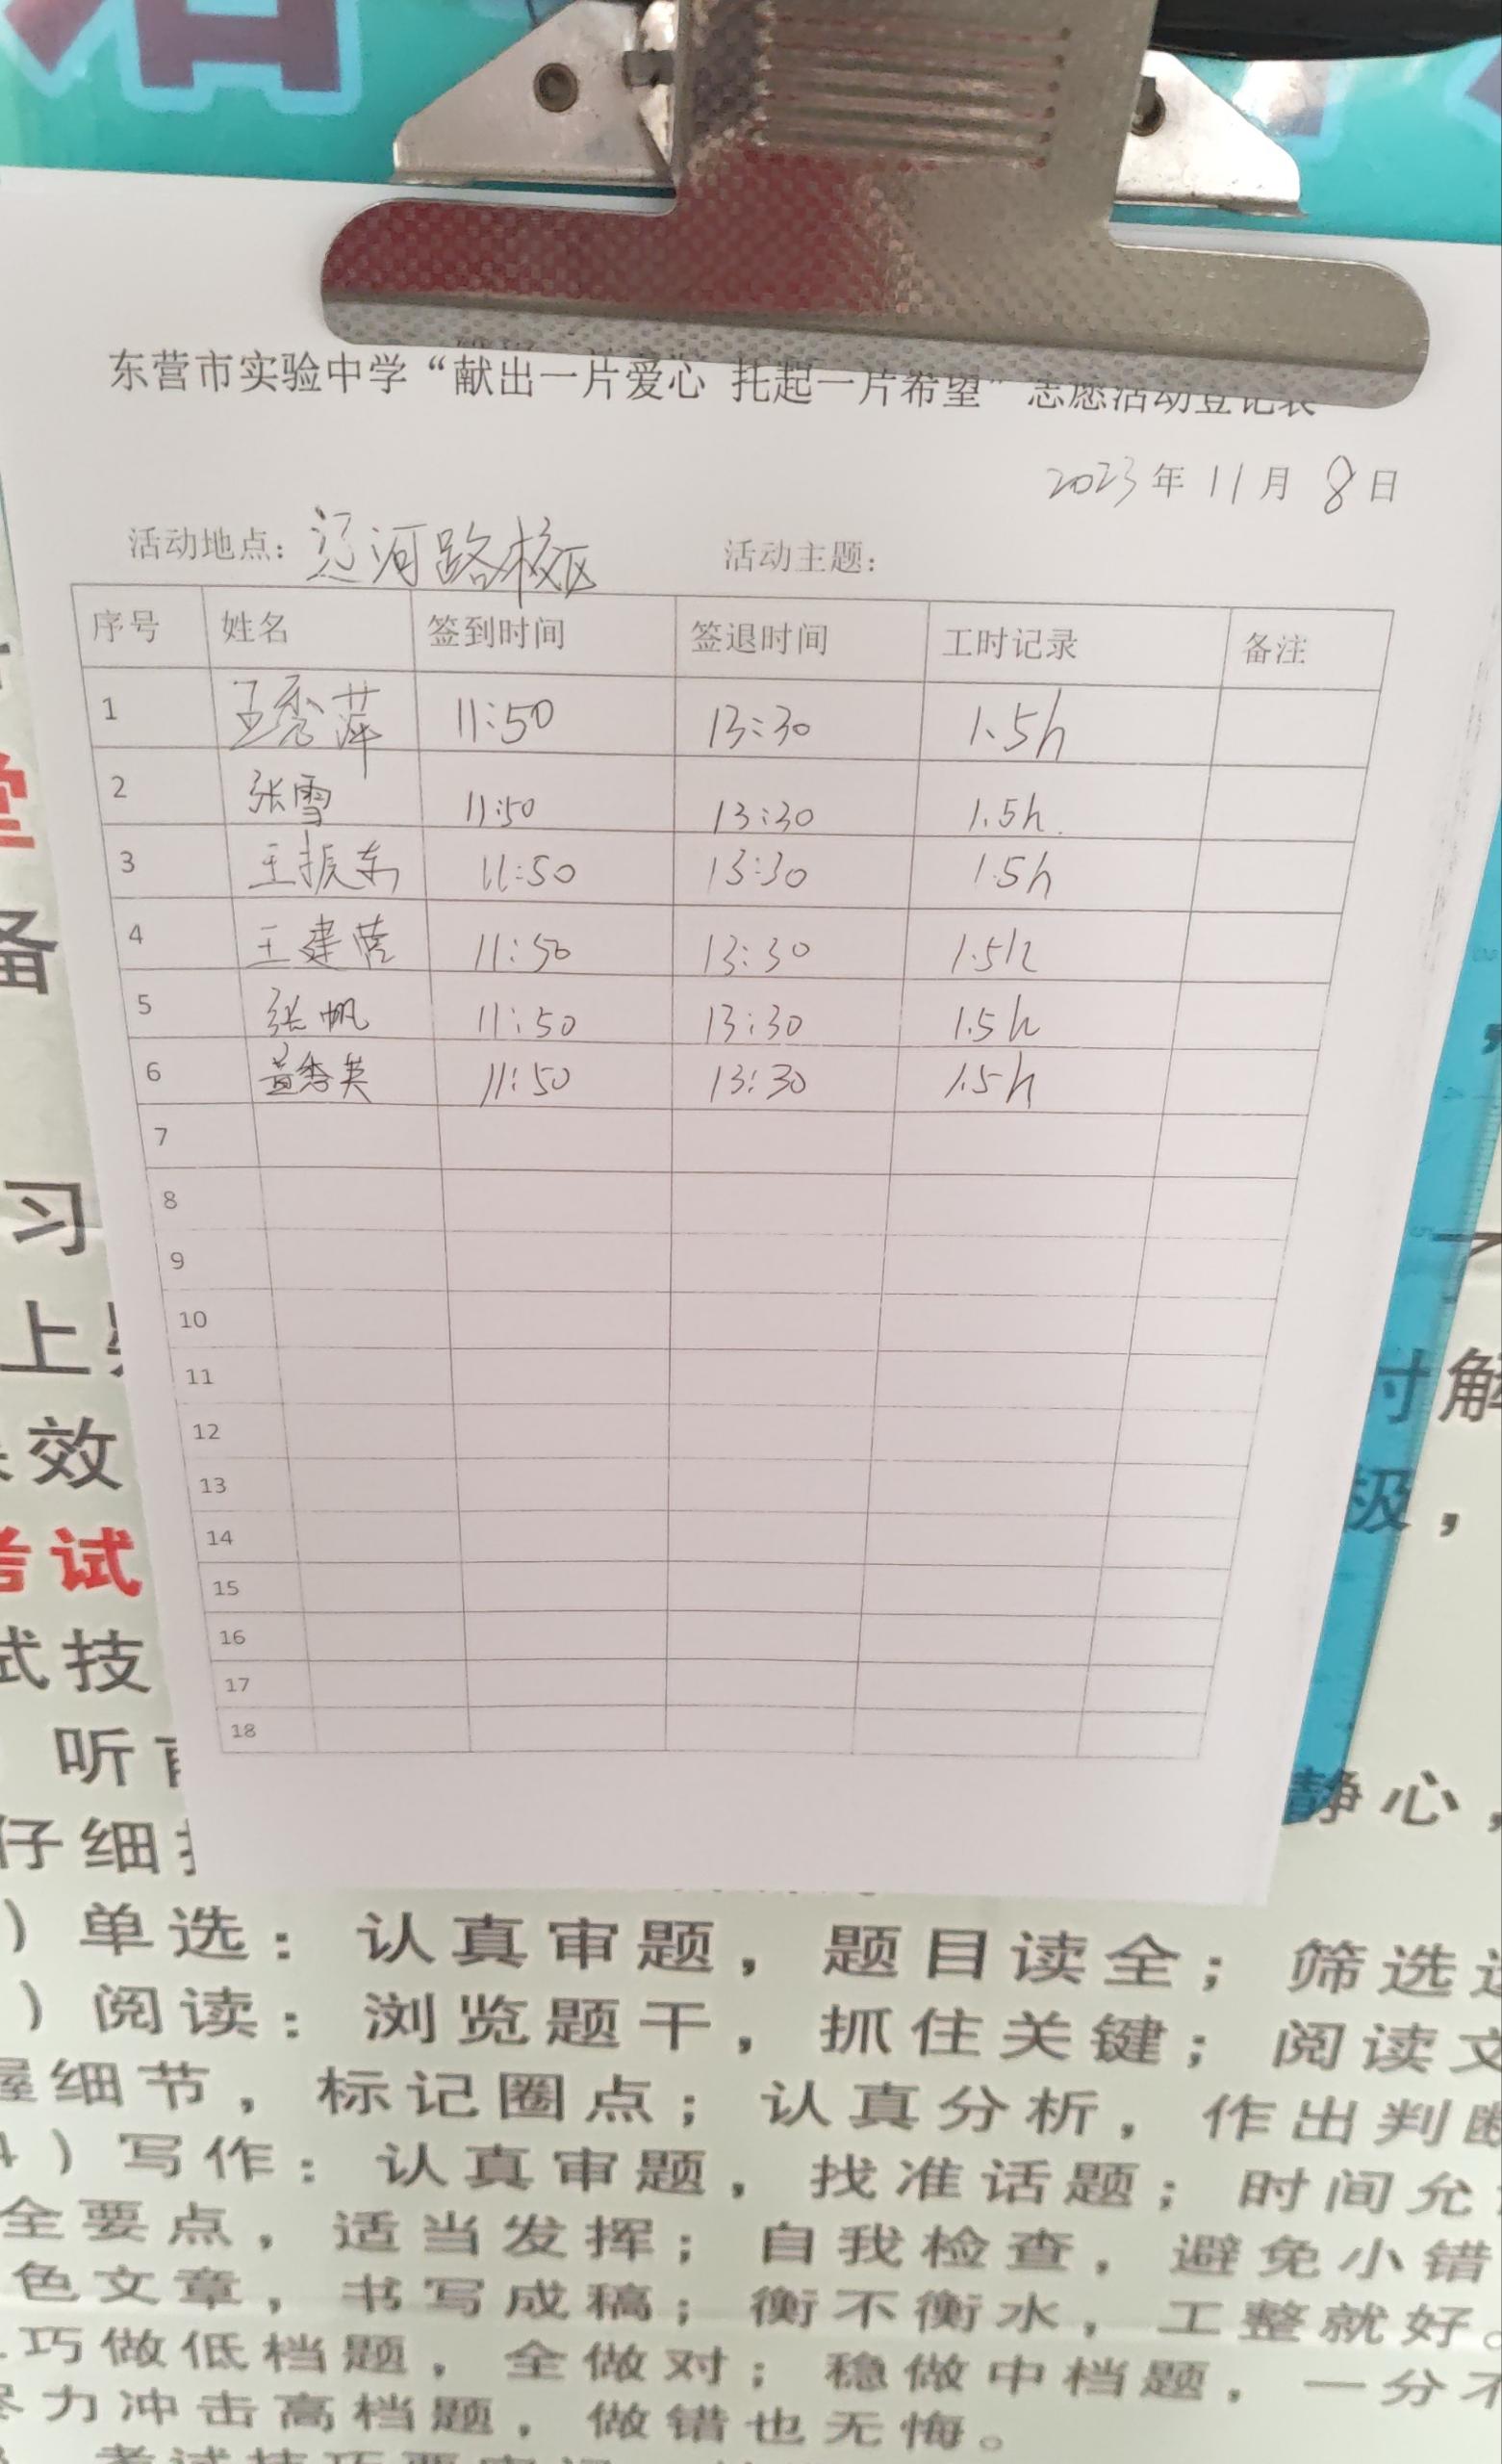 东营市实验中学“献出一片爱心 托起一片希望”志愿活动登记表
2023年11月8日
活动地点：辽河路校区 活动主题：
序号 姓名 签到时间 签退时间 工时记录 备注
1 王秀萍 11:50 13:30 1.5h
2 张雪 11:50 13:30 1.5h.
3 王振东 11:50 13:30 1.5h
4 王建营 11:50 13:30 1.5h
5 张帆 11:50 13:30 1.5h
6 黄秀英 11:50 13:30 1.5h
7
8
9
10
11
12
13
14
15
16
17
18
堂
备
习
上
效
考试
试技
听
仔细
，
讨解
极，
静心，
）单选：认真审题，题目读全；筛选
）阅读：浏览题干，抓住关键；阅读文
握细节，标记圈点；认真分析，作出判断
4）写作：认真审题，找准话题；时间允
全要点，适当发挥；自我检查，避免小错
色文章，书写成稿；衡不衡水，工整就好。
巧做低档题，全做对；稳做中档题，一分不
尽力冲击高档题，做错也无悔。